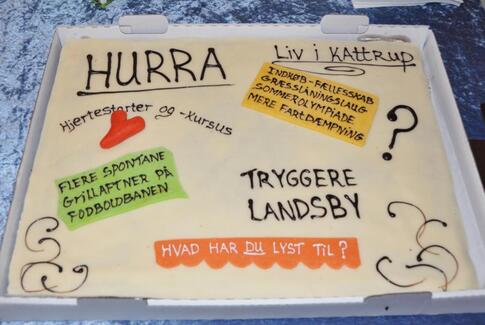 HURRA
Liv i KAttrup
Hjertestarter og -Kursus
INDKØB-FÆLLESSKAB
GRÆSSLÅNINGSLAUG
SOMMEROLYMPIADE
MERE FARTDÆMPNING
?
FLERE SPONTANE
GRILLAFTNER PÅ
FODBOLDBANEN
TRYGGERE
LANDSBY
HVAD HAR DU LYST TIL?